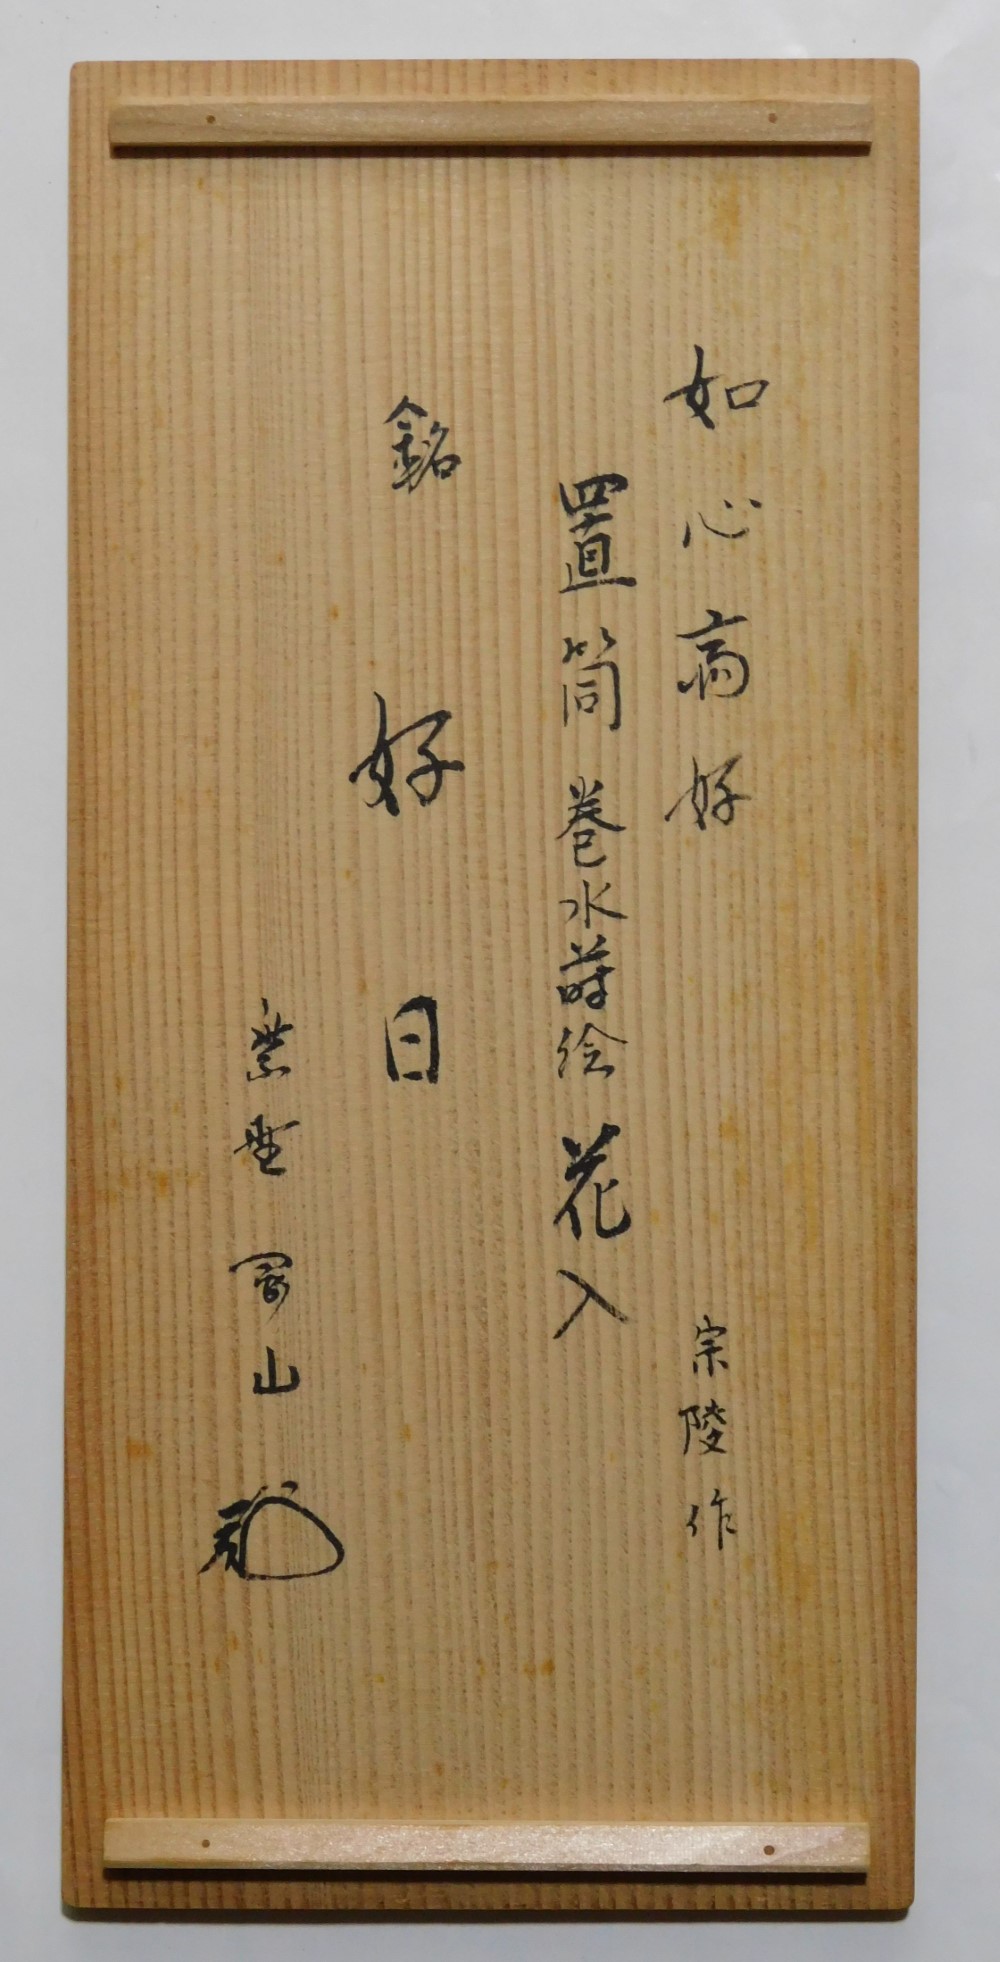 如心斎好 宗陵作
置筒 巻水蒔絵 花入
銘 好日
紫野 山